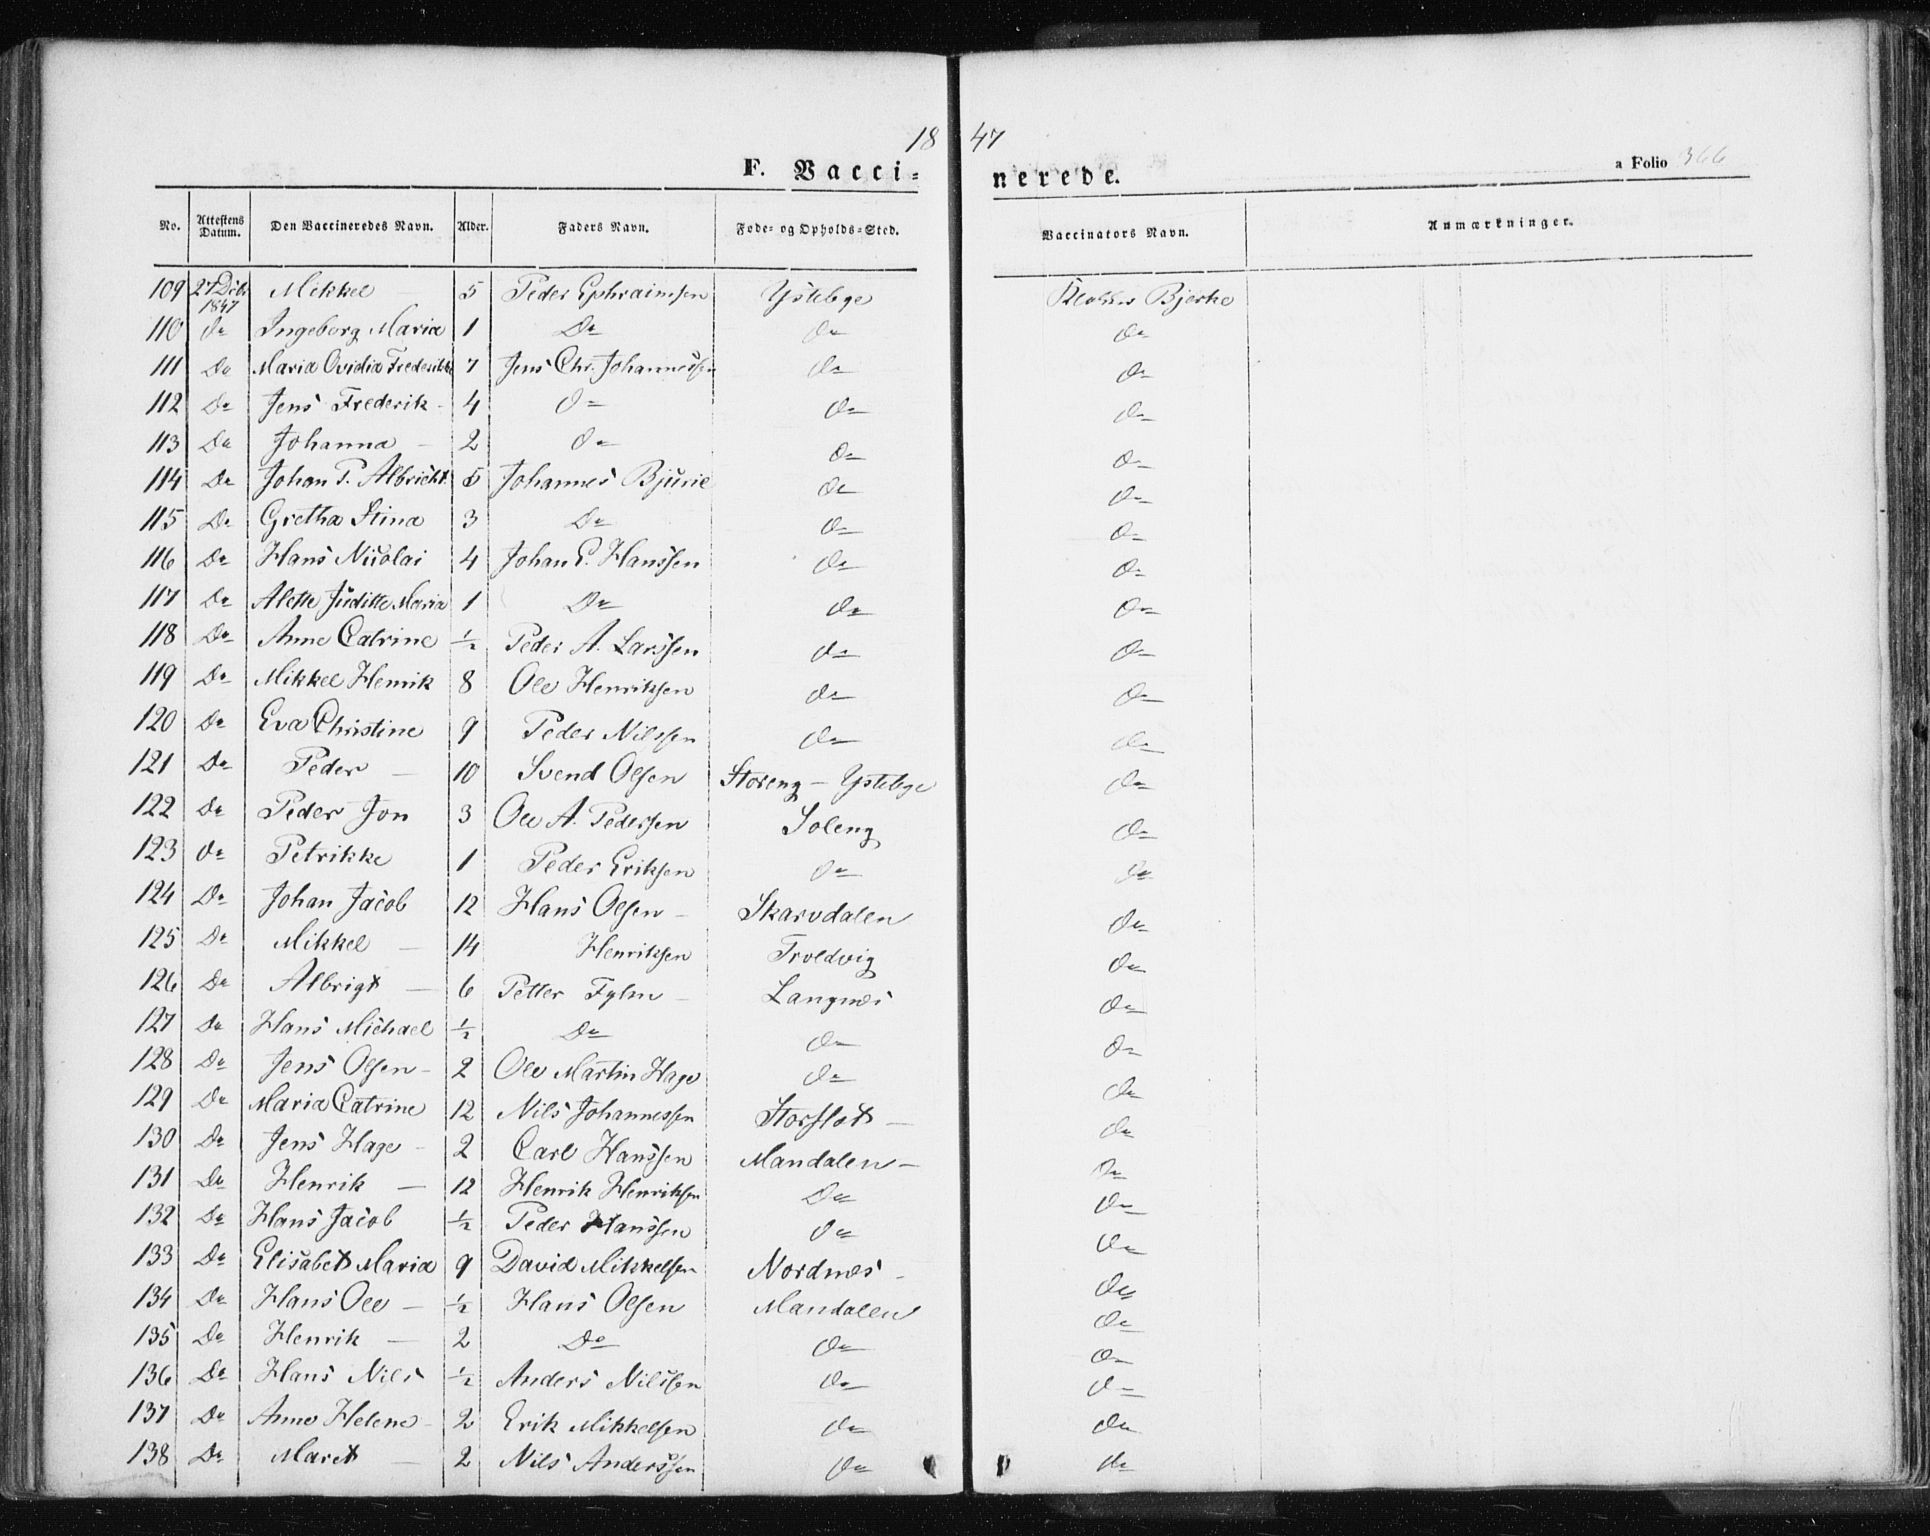 18 47
F. Vacci= nerede. a Folio 366
No. Attestens Datum. Den Vaccineredes Navn. Alder. Faders Navn. Føde- og Opholds-Sted. Vaccinators Navn. Anmærkninger.
109 27 Dcbr 1847 Mikkel — 5 Peder Ephraimsen Ystebye Klokker Bjerke
110 Do Ingeborg Maria 1 Do Do Do
111 Do Maria Ovidia Frederikke 7 Jens Chr. Johannessen Do Do
112 Do Jens Frederik - 4 Do Do Do
113 Do Johanna — 2 Do Do Do
114 Do Johan P. Albricht 5 Johannes Bjurie Do Do
115 Do Gretha Stina 3 Do Do Do
116 Do Hans Nicolai 4 Johan P. Hanssen Do Do
117 Do Alette Juditte Maria 1 Do Do Do
118 Do Anne Catrine ½ Peder A. Larssen Do Do
119 Do Mikkel Henrik 8 Ole Henriksen Do Do
120 Do Eva Christine 9 Peder Nilssen Do Do
121 Do Peder — 10 Svend Olsen Storeng - Ystebye Do
122 Do Peder Jon 3 Ole A. Pedersen Soleng Do
123 Do Petrikke 1 Peder Eriksen Do Do
124 Do Johan Jacob 12 Hans Olsen - Skarvdalen Do
125 Do Mikkel — 14 Henriksen Troldvig Do
126 Do Albrigt — 6 Petter Fylm - Langnæs Do
127 Do Hans Michael ½ Do Do Do
128 Do Jens Olsen - 2 Ole Martin Hage Do Do
129 Do Maria Catrine 12 Nils Johannessen Storslet — Do
130 Do Jens Hage - 2 Carl Hanssen Mandalen — Do
131 Do Henrik — 12 Henrik Henriksen Do Do
132 Do Hans Jacob ½ Peder Hanssen Do Do
133 Do Elisabet Maria 9 David Mikkelsen Nordnæs - Do
134 Do Hans Ole — ½ Hans Olsen Mandalen Do
135 Do Henrik — 2 Do Do Do
136 Do Hans Nils ½ Anders Nilssen Do Do
137 Do Anne Helene - 2 Erik Mikkelsen Do Do
138 Do Maret — 2 Nils Anderssen Do Do